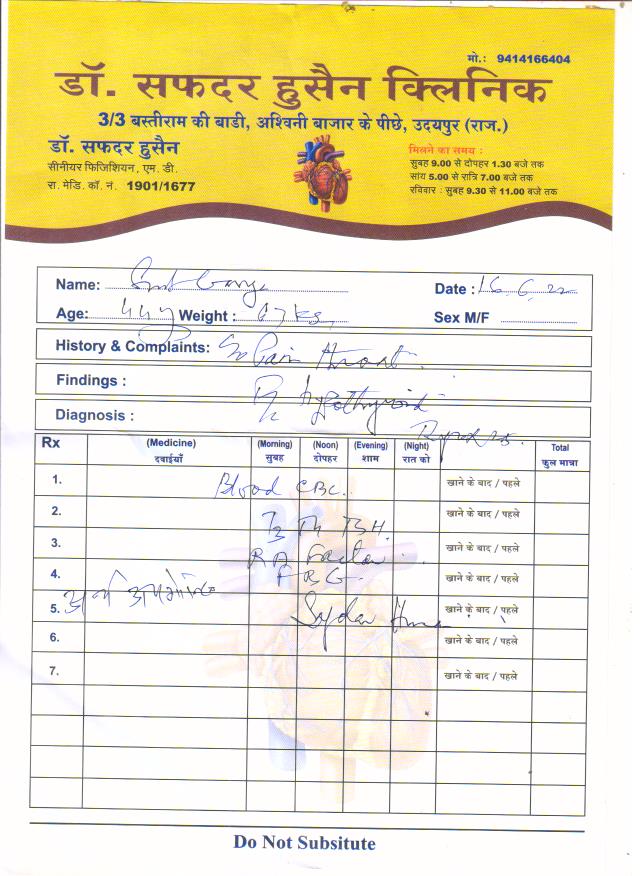 मो.: 9414166404
डॉ. सफदर हुसैन क्लिनिक
3/3 बस्तीराम की बाडी, अश्विनी बाजार के पीछे, उदयपुर (राज.)
डॉ. सफदर हुसैन
सीनीयर फिजिशियन, एम. डी.
रा. मेडि. कॉ. नं. 1901/1677
मिलने का समय :
सुबह 9.00 से दोपहर 1.30 बजे तक
सांय 5.00 से रात्रि 7.00 बजे तक
रविवार : सुबह 9.30 से 11.00 बजे तक
Name: Smt Date : 16.6.22
Age: 44y Weight : 67 kg Sex M/F
History & Complaints: Pain throat.
Findings : hypothyroid
Diagnosis :
Rx (Medicine) (Morning) (Noon) (Evening) (Night) Total
दवाईयाँ सुबह दोपहर शाम रात को कुल मात्रा
1. Blood CBC. खाने के बाद / पहले
2. T3 T4 TSH. खाने के बाद / पहले
3. RA Factor खाने के बाद / पहले
4. FBG. खाने के बाद / पहले
5. खाने के बाद / पहले
6. खाने के बाद / पहले
7. खाने के बाद / पहले
Do Not Subsitute